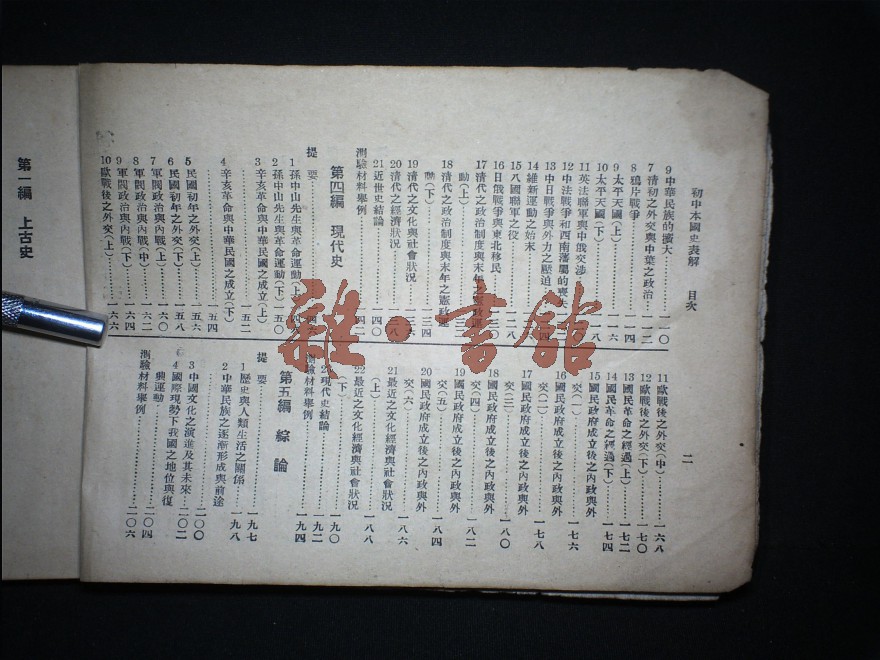 初中本國史表解 目次
二
9 中華民族的擴大……一一〇
7 清初之外交與中葉之政治……一一二
8 鴉片戰爭……一一四
9 太平天國(上)
10 太平天國(下)
11 英法聯軍與中俄交涉
12 中法戰爭和西南藩屬的喪失
13 中日戰爭與外力之壓迫
14 維新運動之始末
15 八國聯軍之役……一二八
16 日俄戰爭與東北移民……一三〇
17 清代之政治制度與末年之憲政運
動(上)
18 清代之政治制度與末年之憲政運
動(下)
19 清代之文化與社會狀況……一三六
20 清代之經濟狀況……一三八
21 近世史結論……一四〇
測驗材料舉例……一四二
第四編 現代史
提 要
1 孫中山先生與革命運動(上)
2 孫中山先生與革命運動(下)……一五〇
3 辛亥革命與中華民國之成立(上)
……一五二
4 辛亥革命與中華民國之成立(下)
……一五四
5 民國初年之外交(上)
6 民國初年之外交(下)……一五八
7 軍閥政治與內戰(上)……一六〇
8 軍閥政治與內戰(中)……一六二
9 軍閥政治與內戰(下)……一六四
10 歐戰後之外交(上)……一六六
11 歐戰後之外交(中)……一六八
12 歐戰後之外交(下)……一七〇
13 國民革命之經過(上)……一七二
14 國民革命之經過(下)……一七四
15 國民政府成立後之內政與外
交(一)……一七六
16 國民政府成立後之內政與外
交(二)……一七八
17 國民政府成立後之內政與外
交(三)……一八〇
18 國民政府成立後之內政與外
交(四)……一八二
19 國民政府成立後之內政與外
交(五)……一八四
20 國民政府成立後之內政與外
交(六)……一八六
21 最近之文化經濟與社會狀況
(上)……一八八
22 最近之文化經濟與社會狀況
(下)……一九〇
現代史結論……一九二
測驗材料舉例……一九四
第五編 綜論
提 要……一九七
1 歷史與人類生活之關係……一九八
2 中華民族之逐漸形成與前途
3 中國文化之演進及其未來……二〇〇
4 國際現勢下我國之地位與復
興運動……二〇二
測驗材料舉例……二〇四
……二〇六
第一編 上古史
雜·書館